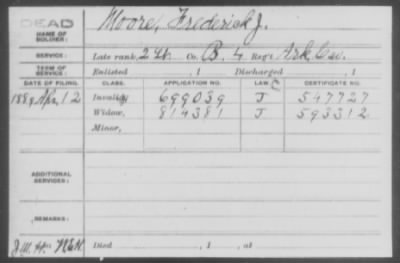 DEAD
Moore, Frederick J.
NAME OF SOLDIER:
SERVICE: Late rank, 2 Lt. Co. B. 4 Reg't Ark. Cav.
TERM OF SERVICE: Enlisted , 1 Discharged , 1
DATE OF FILING. CLASS. APPLICATION NO. LAW. CERTIFICATE NO.
188 Apr. 12 Invalid, 699039 J 547727
Widow, 814381 J 593312
Minor,
ADDITIONAL SERVICES:
REMARKS:
Died , 1 , at